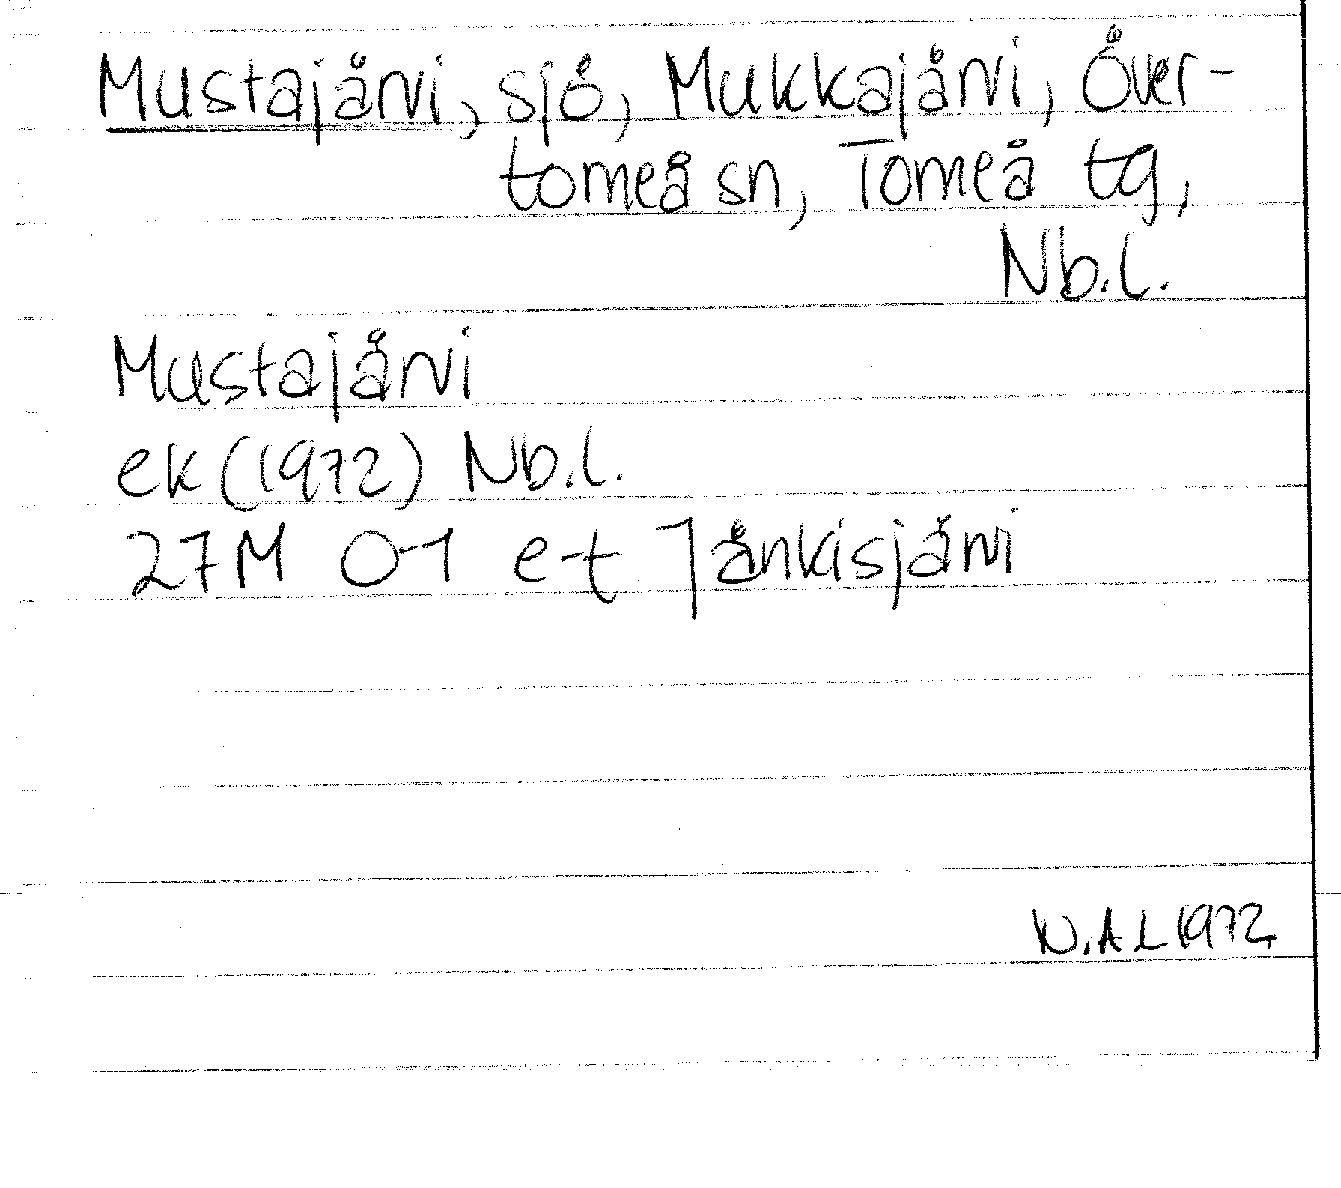 Mustajärvi, sjö, Mukkajärvi, Över-
torneå sn, Torneå tg,
Nb.l.
Mustajärvi
ek (1972) Nb.l.
27M 0-1 e-f Jänkisjärvi
N.A L 1972